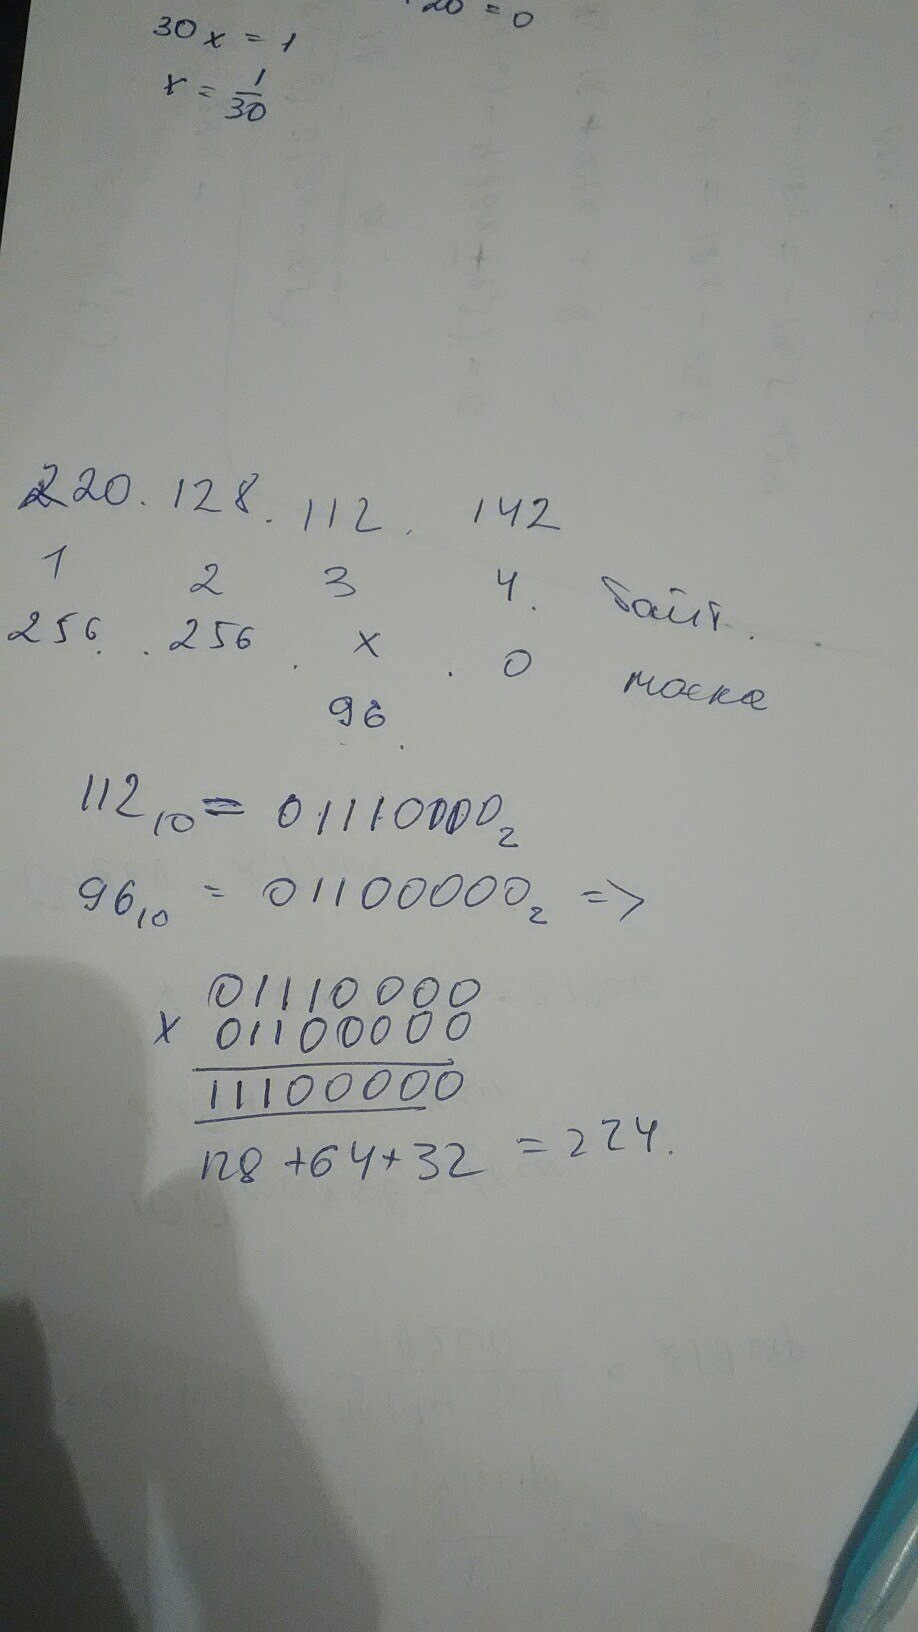 20 = 0
30x = 1
x = 1/30
220. 128. 112. 142
1 2 3 4. байт.
256. . 256 . x . 0 маска
96
112₁₀ = 01110000₂
96₁₀ = 01100000₂ =>
01110000
x 01100000
11100000
128 + 64 + 32 = 224.